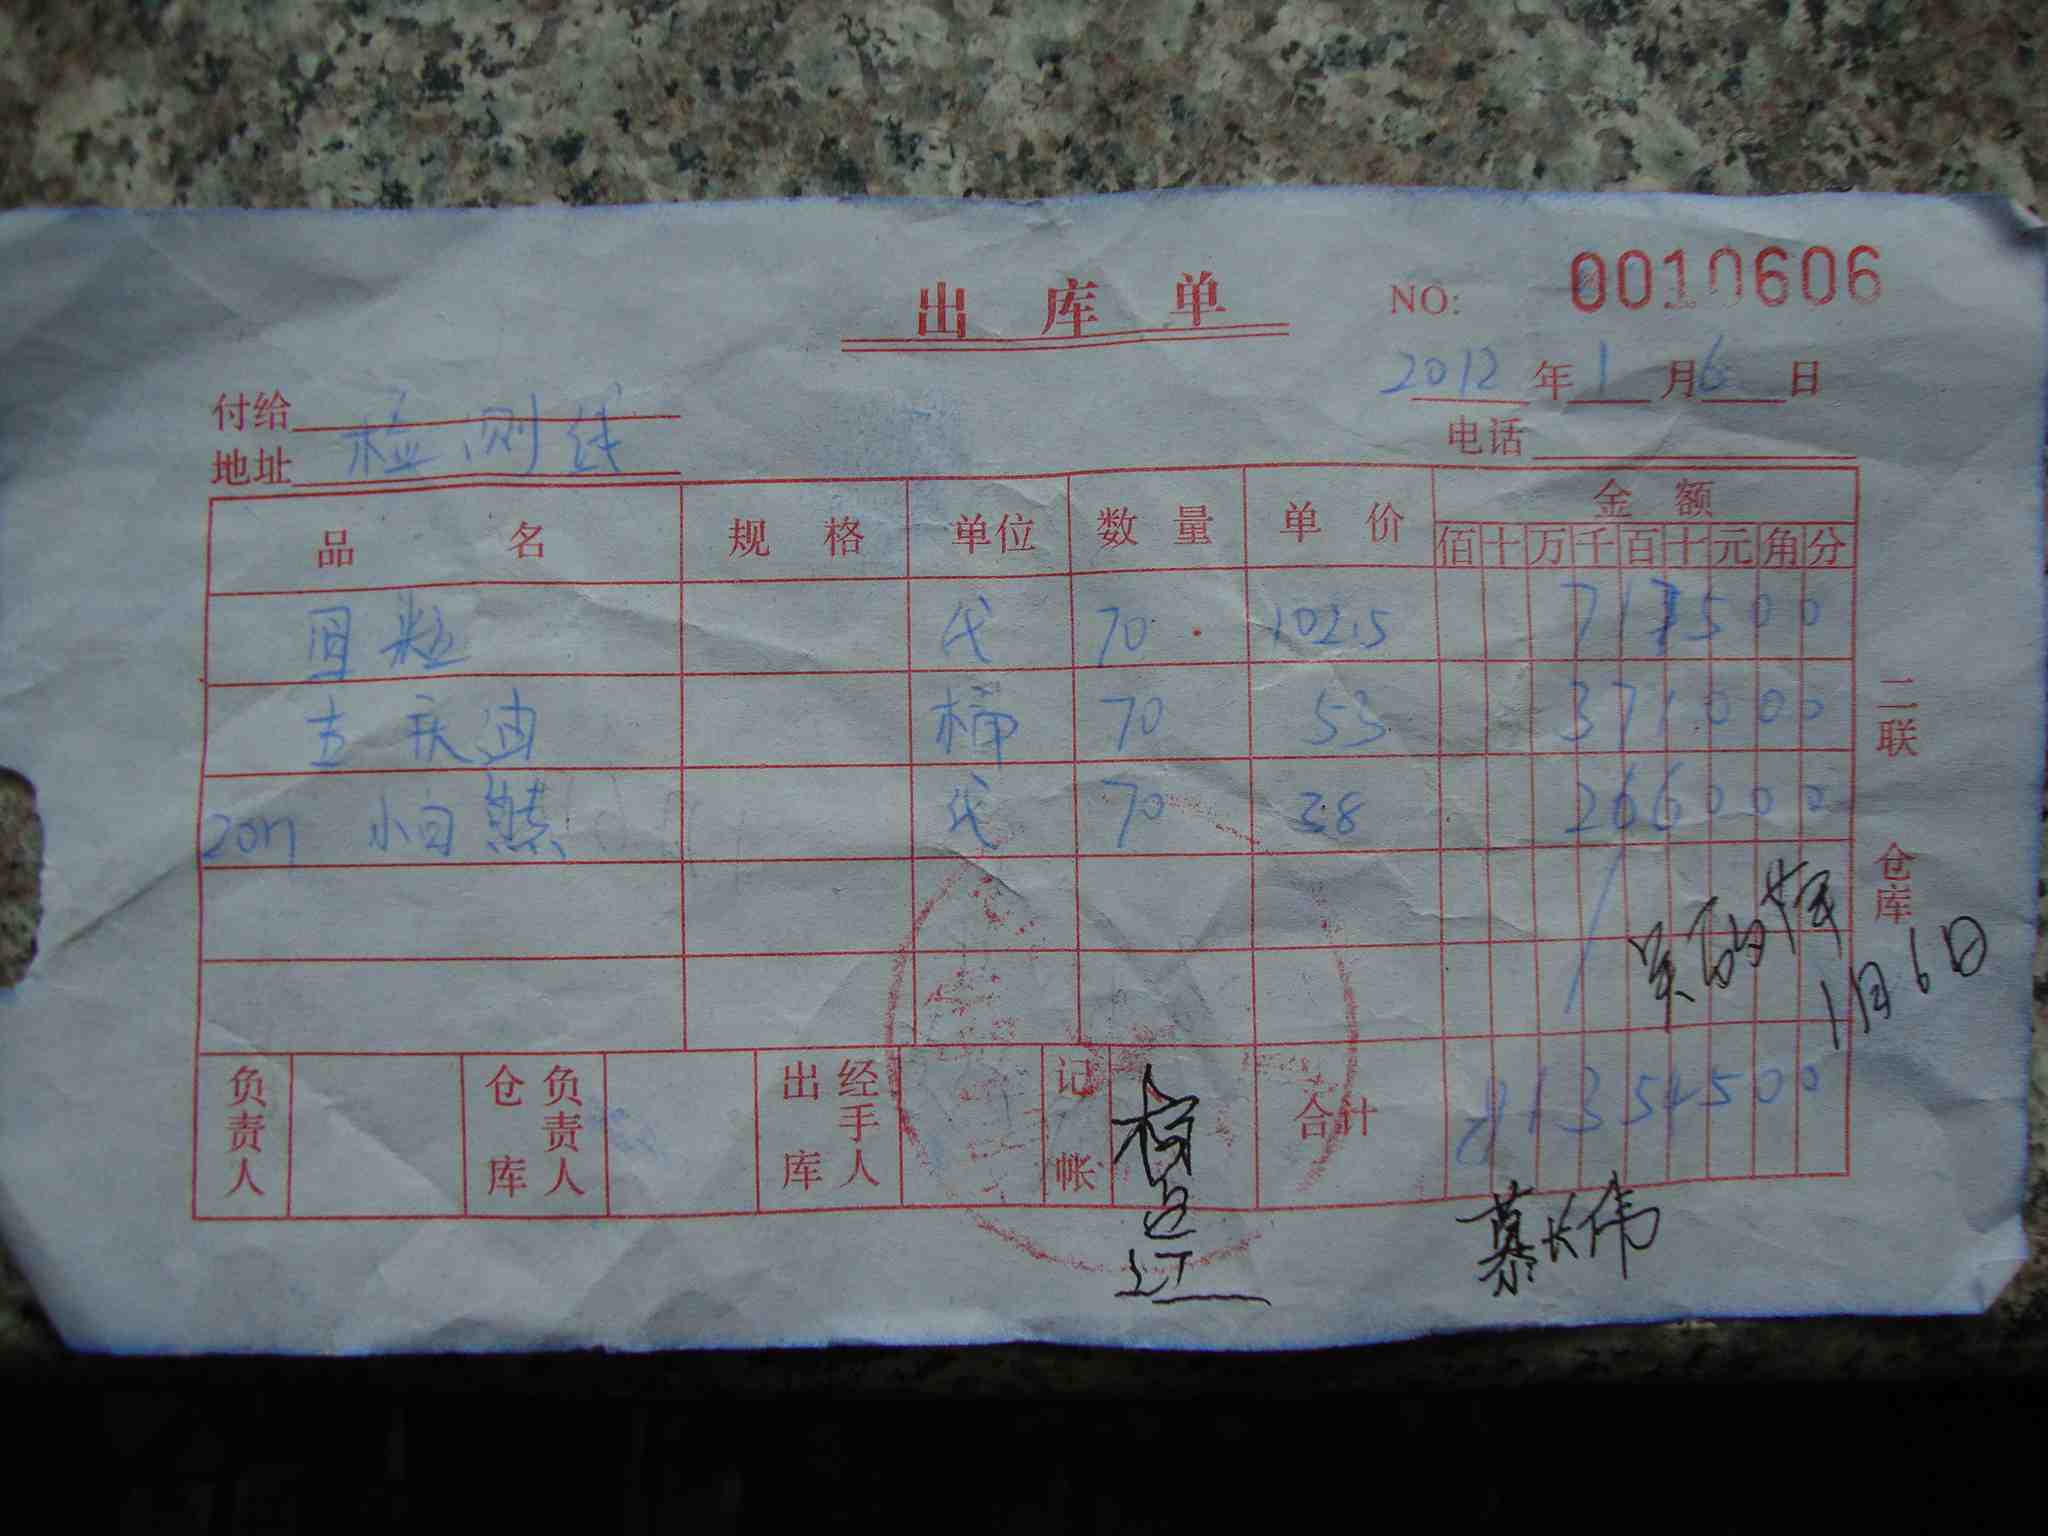 出库单
NO: 0010606
2012年1月6日
付给
电话
地址 检测线
品名 规格 单位 数量 单价 金额
佰十万千百十元角分
圆粒 代 70 102.5 717500
吉庆油 桶 70 53 371000
20n 小白熊 代 70 38 266000
1月6日
负责人 仓库负责人 出库经手人 记帐 合计 1354500
慕长伟
二联 仓库